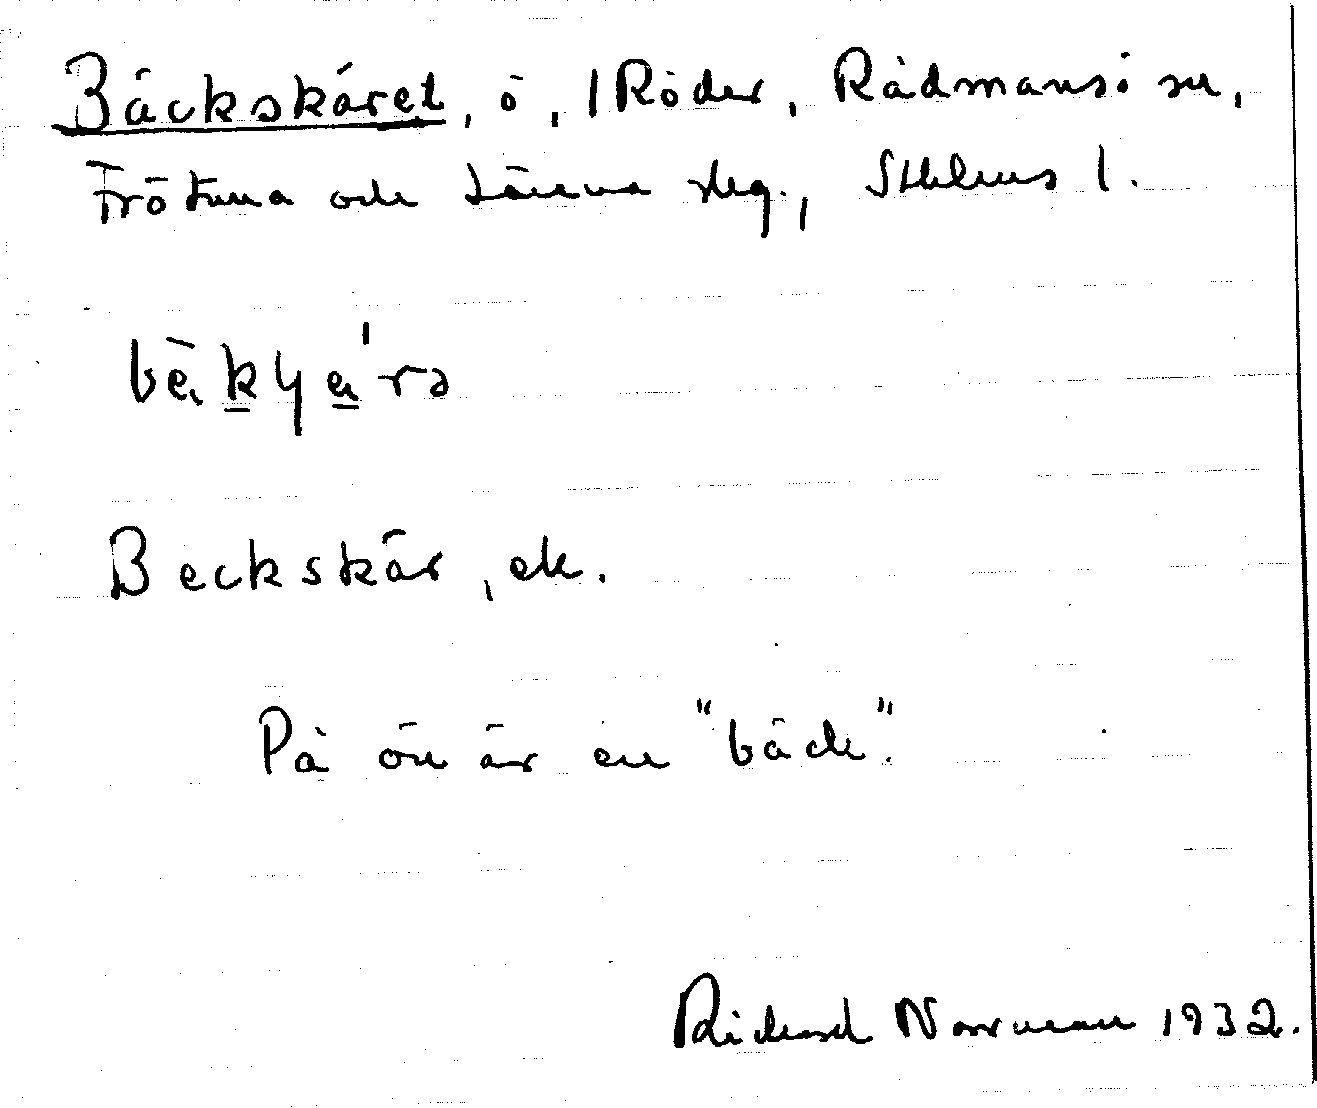 Bäckskäret, ö, i Röder, Rådmansö sn,
Frötuna och Länna skg., Sthlms l.
Beckskär, ek.
På ön är en "bäck".
Richard Norrman 1932.